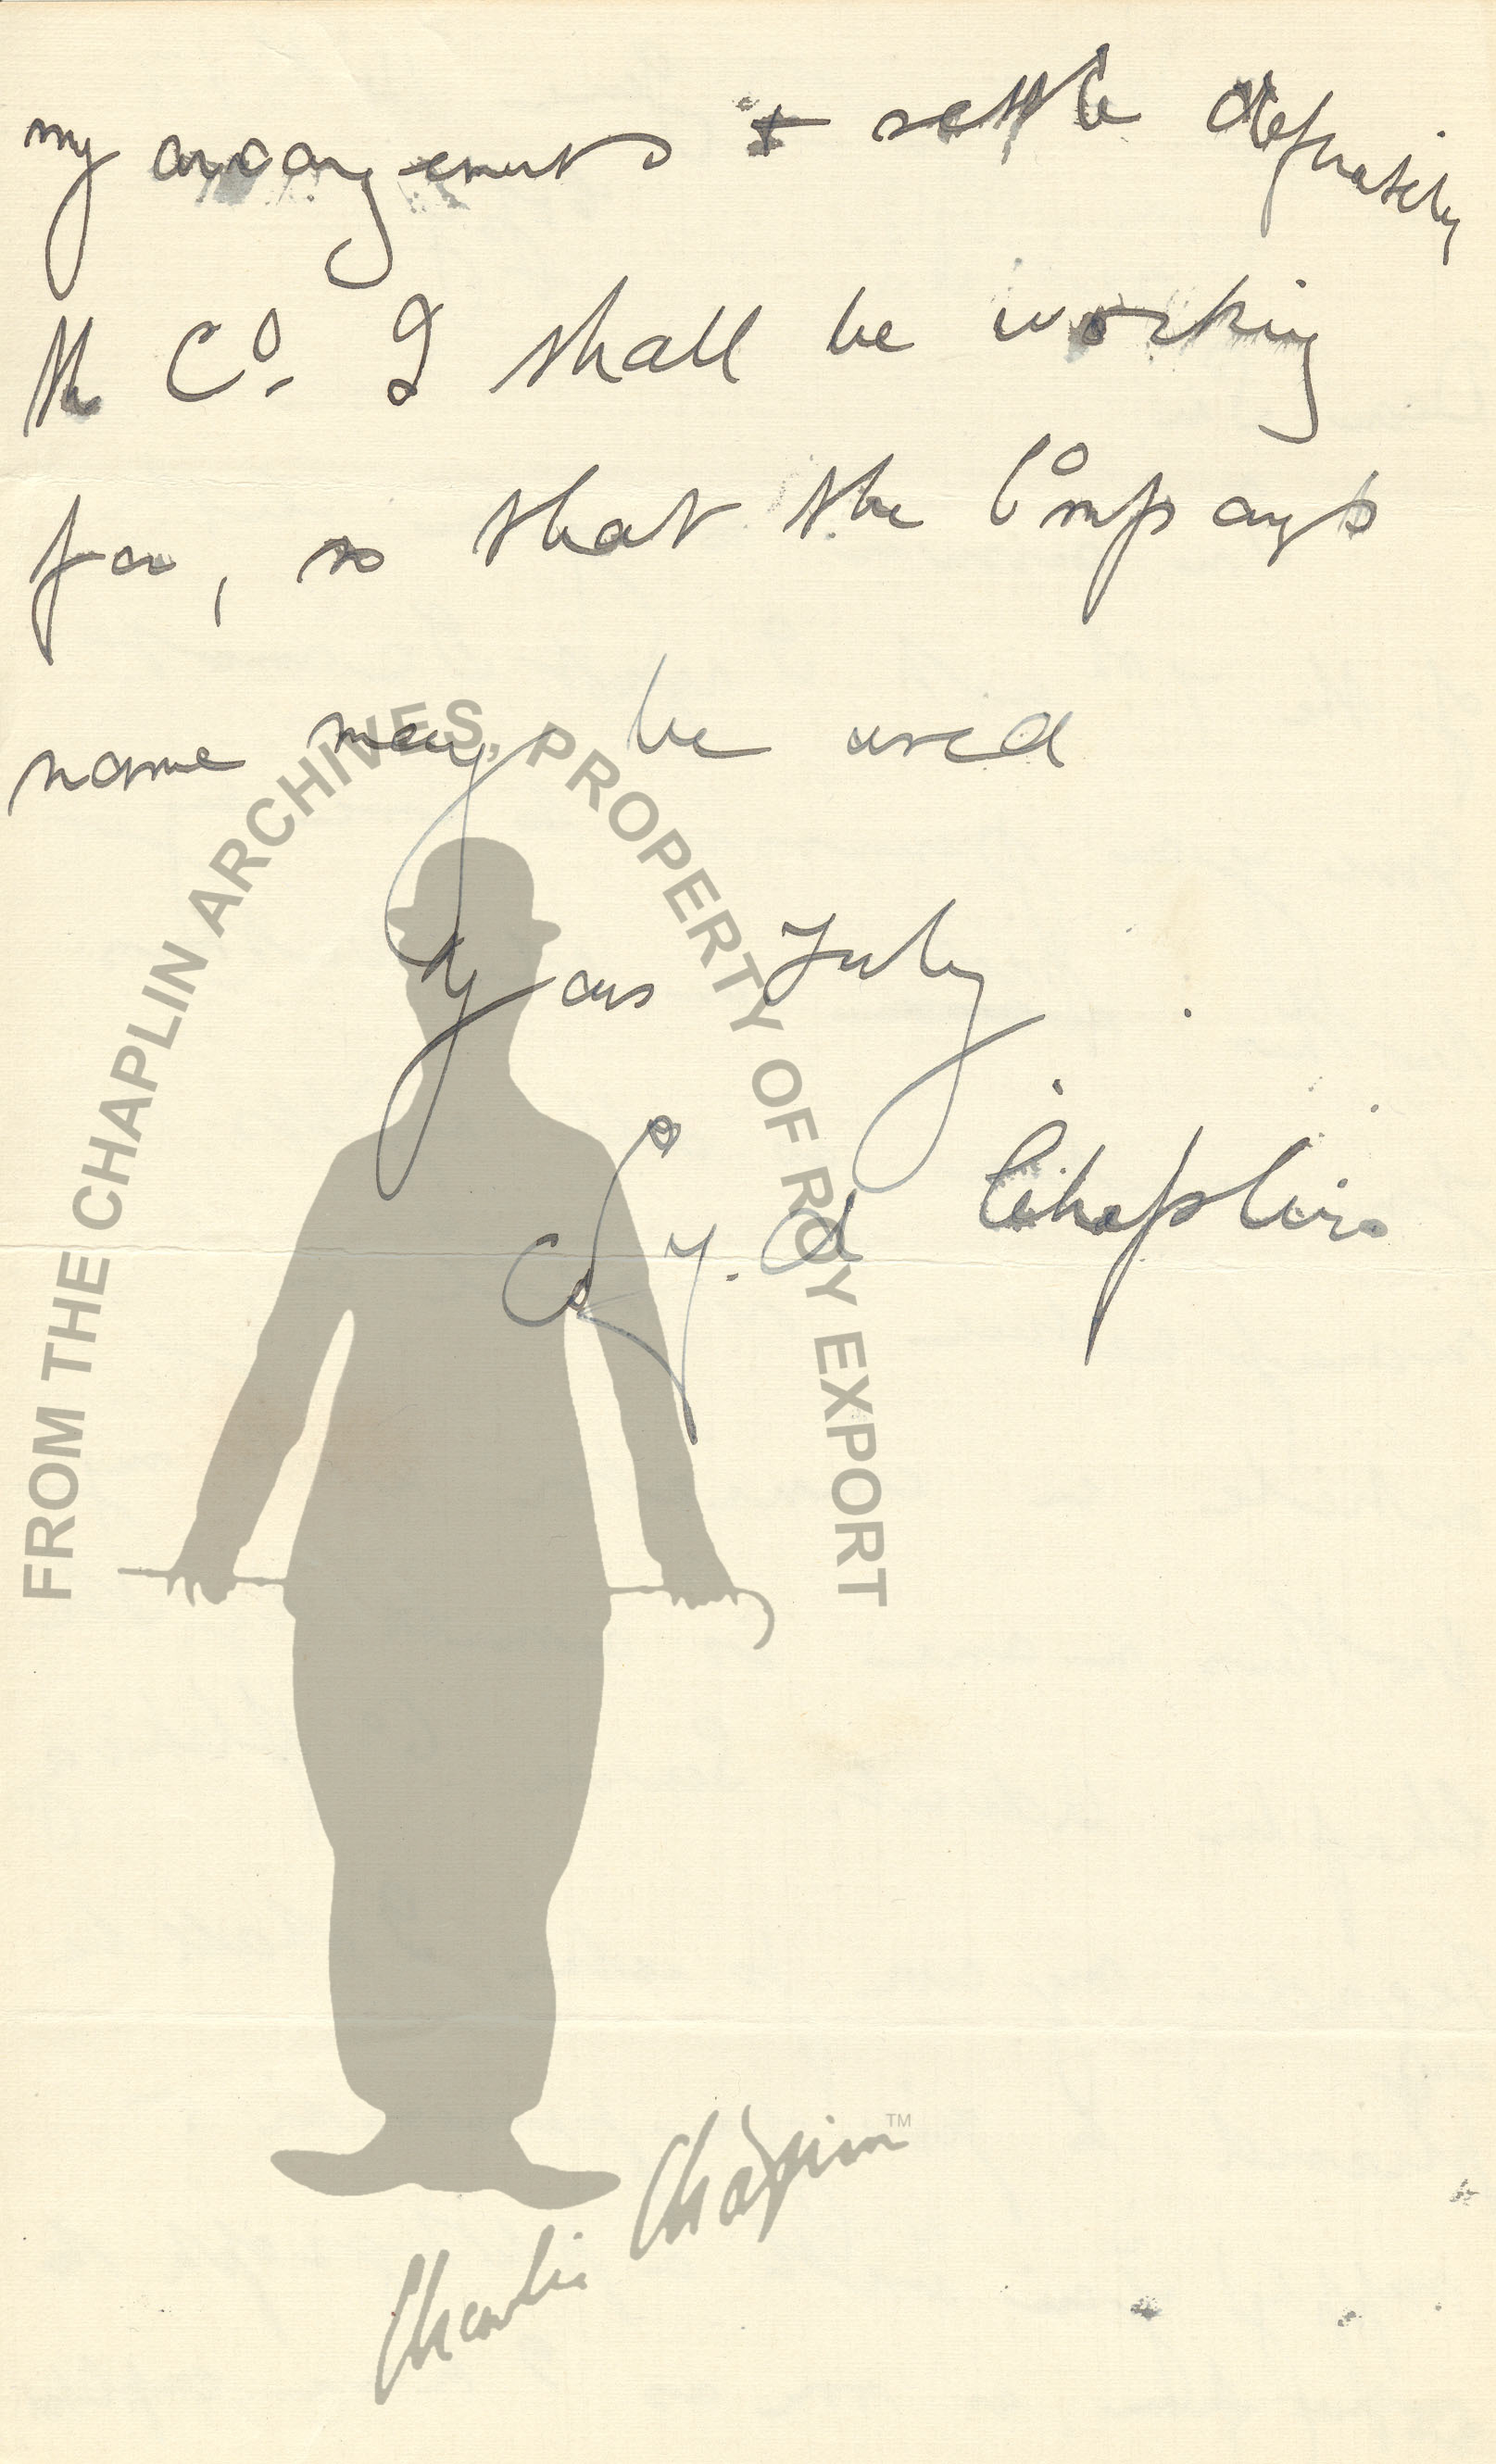 my arrangements & settle definately
the Co. I shall be working
for, so that the Company's
name may be used
Yours Truly
Syd Chaplin
FROM THE CHAPLIN ARCHIVES, PROPERTY OF ROY EXPORT
Charlie Chaplin™